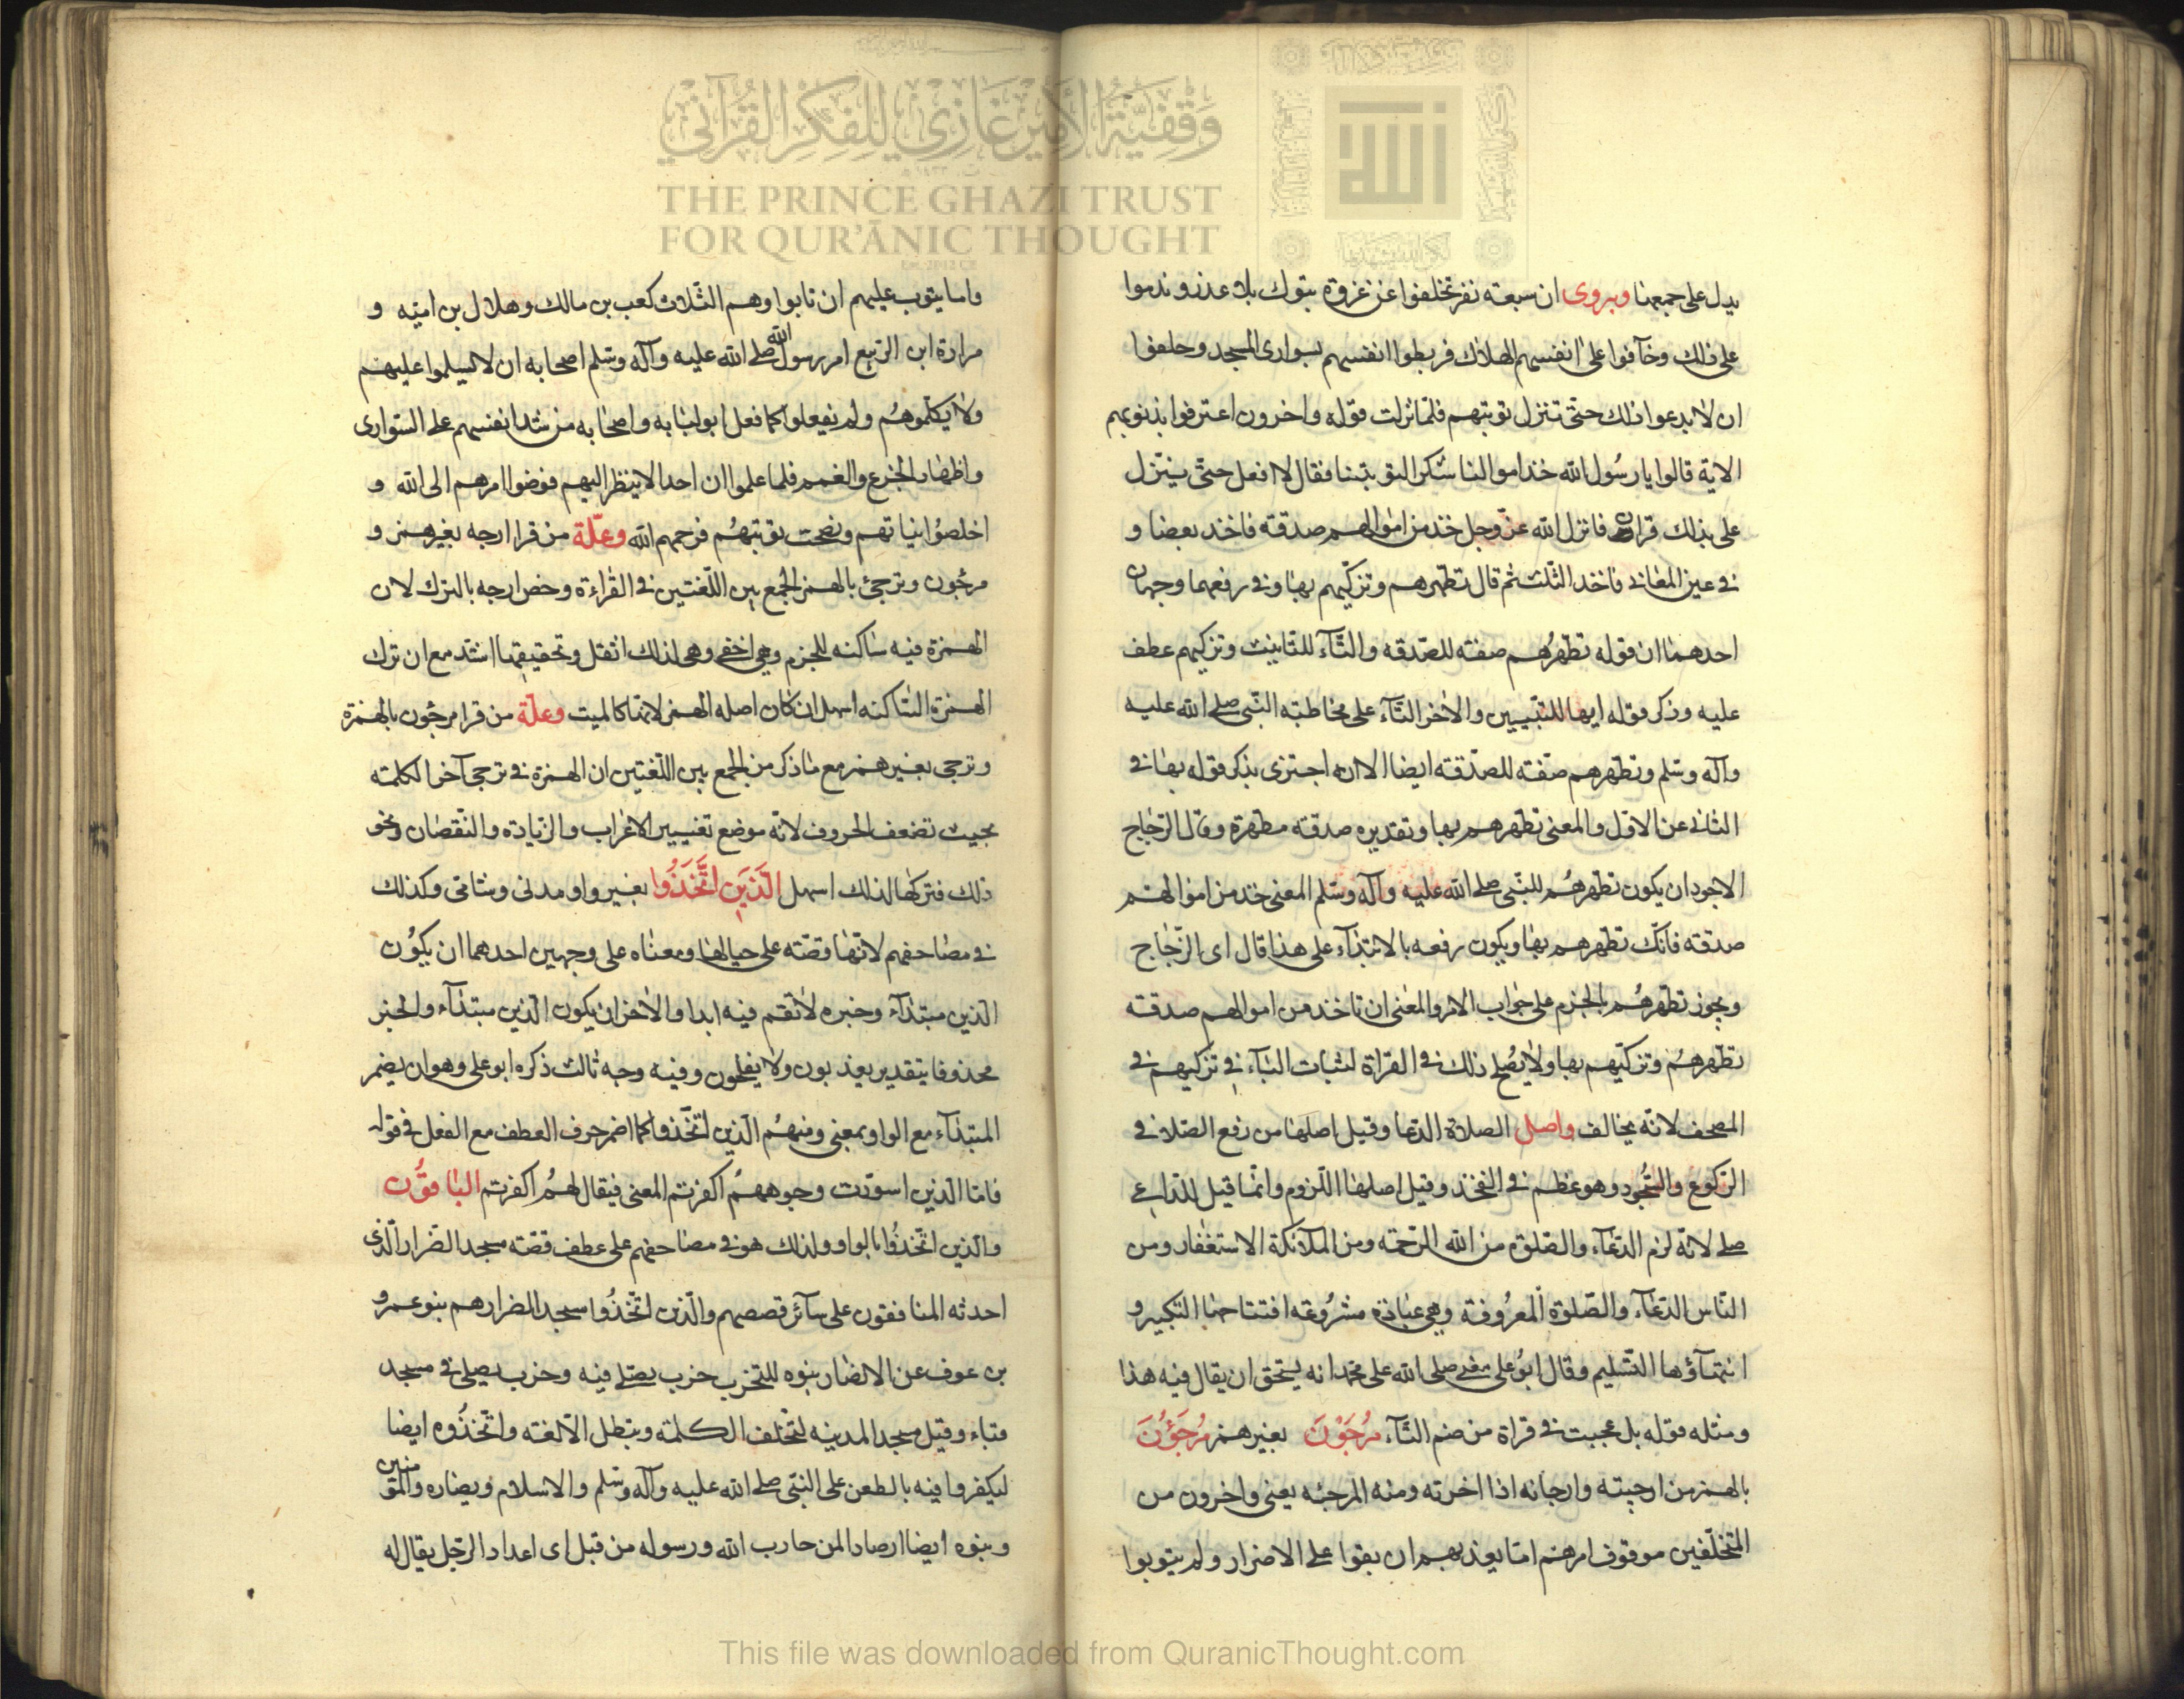 وقفية الأمير غازي للفكر القرآني
THE PRINCE GHAZI TRUST
FOR QUR'ĀNIC THOUGHT
الله
يدل على جمعها ويروى ان سبعة نفر تخلفوا عن غزوة تبوك بلا عذر وندموا
على ذلك وخآفوا على انفسهم الهلاك فربطوا انفسهم بسوارى المسجد وحلفوا
ان لا يدعوا ذلك حتى تنزل توبتهم فلما نزلت قوله واخرون اعترفوا بذنوبهم
الاية قالوا يا رسول الله خذ اموالنا شكرا لتوبتنا فقال لا افعل حتى ينزل
على بذلك قران فانزل الله عز وجل خذ من اموالهم صدقة فاخذ بعضا و
في عين المعاني فاخذ الثلث ثم قال تطهرهم وتزكيهم بها وفي رفعهما وجهان
احدهما ان قوله تطهرهم صفة للصدقة والتآء للتانيث وتزكيهم عطف
عليه وذكر قوله ايها للتبيين والاخر التآء على مخاطبة النبي صلى الله عليه
وآله وسلم وتطهرهم صفة للصدقة ايضا الا انه اجتزى بذكر قوله بها في
الثاني عن الاول والمعنى تطهرهم بها وتقديره صدقة مطهرة وقال الزجاج
الاجود ان يكون تطهرهم للنبي صلى الله عليه وآله وسلم المعنى خذ من اموالهم
صدقة فانك تطهرهم بها ويكون رفعه بالابتدآء على هذا قال اى الزجاج
ويجوز تطهرهم بالجزم على جواب الامر والمعنى ان تاخذ من اموالهم صدقة
تطهرهم وتزكيهم بها ولا يصح ذلك في القراة لثبات اليآء في تزكيهم في
المصحف لانه يخالف واصل الصلاة الدعا وقيل اصلها من رفع الصلا في
الركوع والسجود وهو عظم في الفخذ وقيل اصلها اللزوم وانما قيل للداعي
صلى لانه لزم الدعآء والصلوة من الله الرحمة ومن الملآئكة الاستغفار ومن
الناس الدعآء والصلوة المعروفة وهي عبادة مشروعة افتتاحها التكبير و
انتهآؤها التسليم وقال ابو على معنى صلى الله على محمد انه يستحق ان يقال فيه هذا
ومثله قوله بل عجبت في قراة من ضم التآء مُرجَوْنَ بغير همز مُرجَؤُنَ
بالهمز من ارجيته وارجاته اذا اخرته ومنه المرجئه يعنى واخرون من
المتخلفين موقوف امرهم اما يعذبهم ان بقوا على الاصرار ولم يتوبوا
واما يتوب عليهم ان تابوا وهم الثلاث كعب بن مالك وهلال بن امية و
مرارة ابن الربيع امر رسول الله صلى الله عليه وآله وسلم اصحابه ان لا يسلموا عليهم
ولا يكلموهم ولم يفعلوا كما فعل ابو لبابه واصحابه من شد انفسهم على السوارى
واظهار الجزع والغمم فلما علموا ان احدا لا ينظر اليهم فوضوا امرهم الى الله و
اخلصوا نياتهم ونصحت توبتهم فرحمهم الله وعلة من قرا ارجه بغير همز و
مرجون وترجئ بالهمز الجمع بين اللغتين في القراءة وخص ارجه بالترك لان
الهمزة فيه ساكنه للجزم وهي اخفى وهي لذلك اثقل وتحقيقها اشد مع ان ترك
الهمزة الساكنه اسهل ان كان اصله الهمز لانها كالميت وعلة من قرا مرجون بالهمزة
وترجى بغير همز مع ما ذكر من الجمع بين اللغتين ان الهمزة في ترجى آخر الكلمة
بحيث تضعف الحروف لانه موضع تغيير الاعراب والزيادة والنقصان ونحو
ذلك فتركها لذلك اسهل الَّذينَ اتَّخَذُوا بغير واو مدنى وشامى وكذلك
في مصاحفهم لانها قصة على حيالها ومعناه على وجهين احدهما ان يكون
الذين مبتدآء وخبره لا تقم فيه ابدا والاخر ان يكون الذين مبتدآء والخبر
محذوفا بتقدير يعذبون ولا يفلحون وفيه وجه ثالث ذكره ابو على وهو ان يضمر
المبتدآء مع الواو بمعنى ومنهم الذين اتخذوا كما اضمر حرف العطف مع الفعل في قوله
فاما الذين اسودت وجوههم اكفرتم المعنى فيقال لهم اكفرتم الباقون
والذين اتخذوا بالواو ولذلك هو في مصاحفهم على عطف قصة مسجد الضرار الذى
احدثه المنافقون على سآئر قصصهم والذين اتخذوا مسجد الضرار هم بنو عمرو
بن عوف عن الانصار بنوه للتحزب حزب يصلى فيه وحزب يصلى في مسجد
قباء وقيل مسجد المدينه لتختلف الكلمة وتبطل الالفة واتخذوه ايضا
ليكفروا فيه بالطعن على النبي صلى الله عليه وآله وسلم والاسلام ويضاره والمؤمنين
وبنوه ايضا ارصادا لمن حارب الله ورسوله من قبل اى اعدادا لرجل يقال له
This file was downloaded from QuranicThought.com